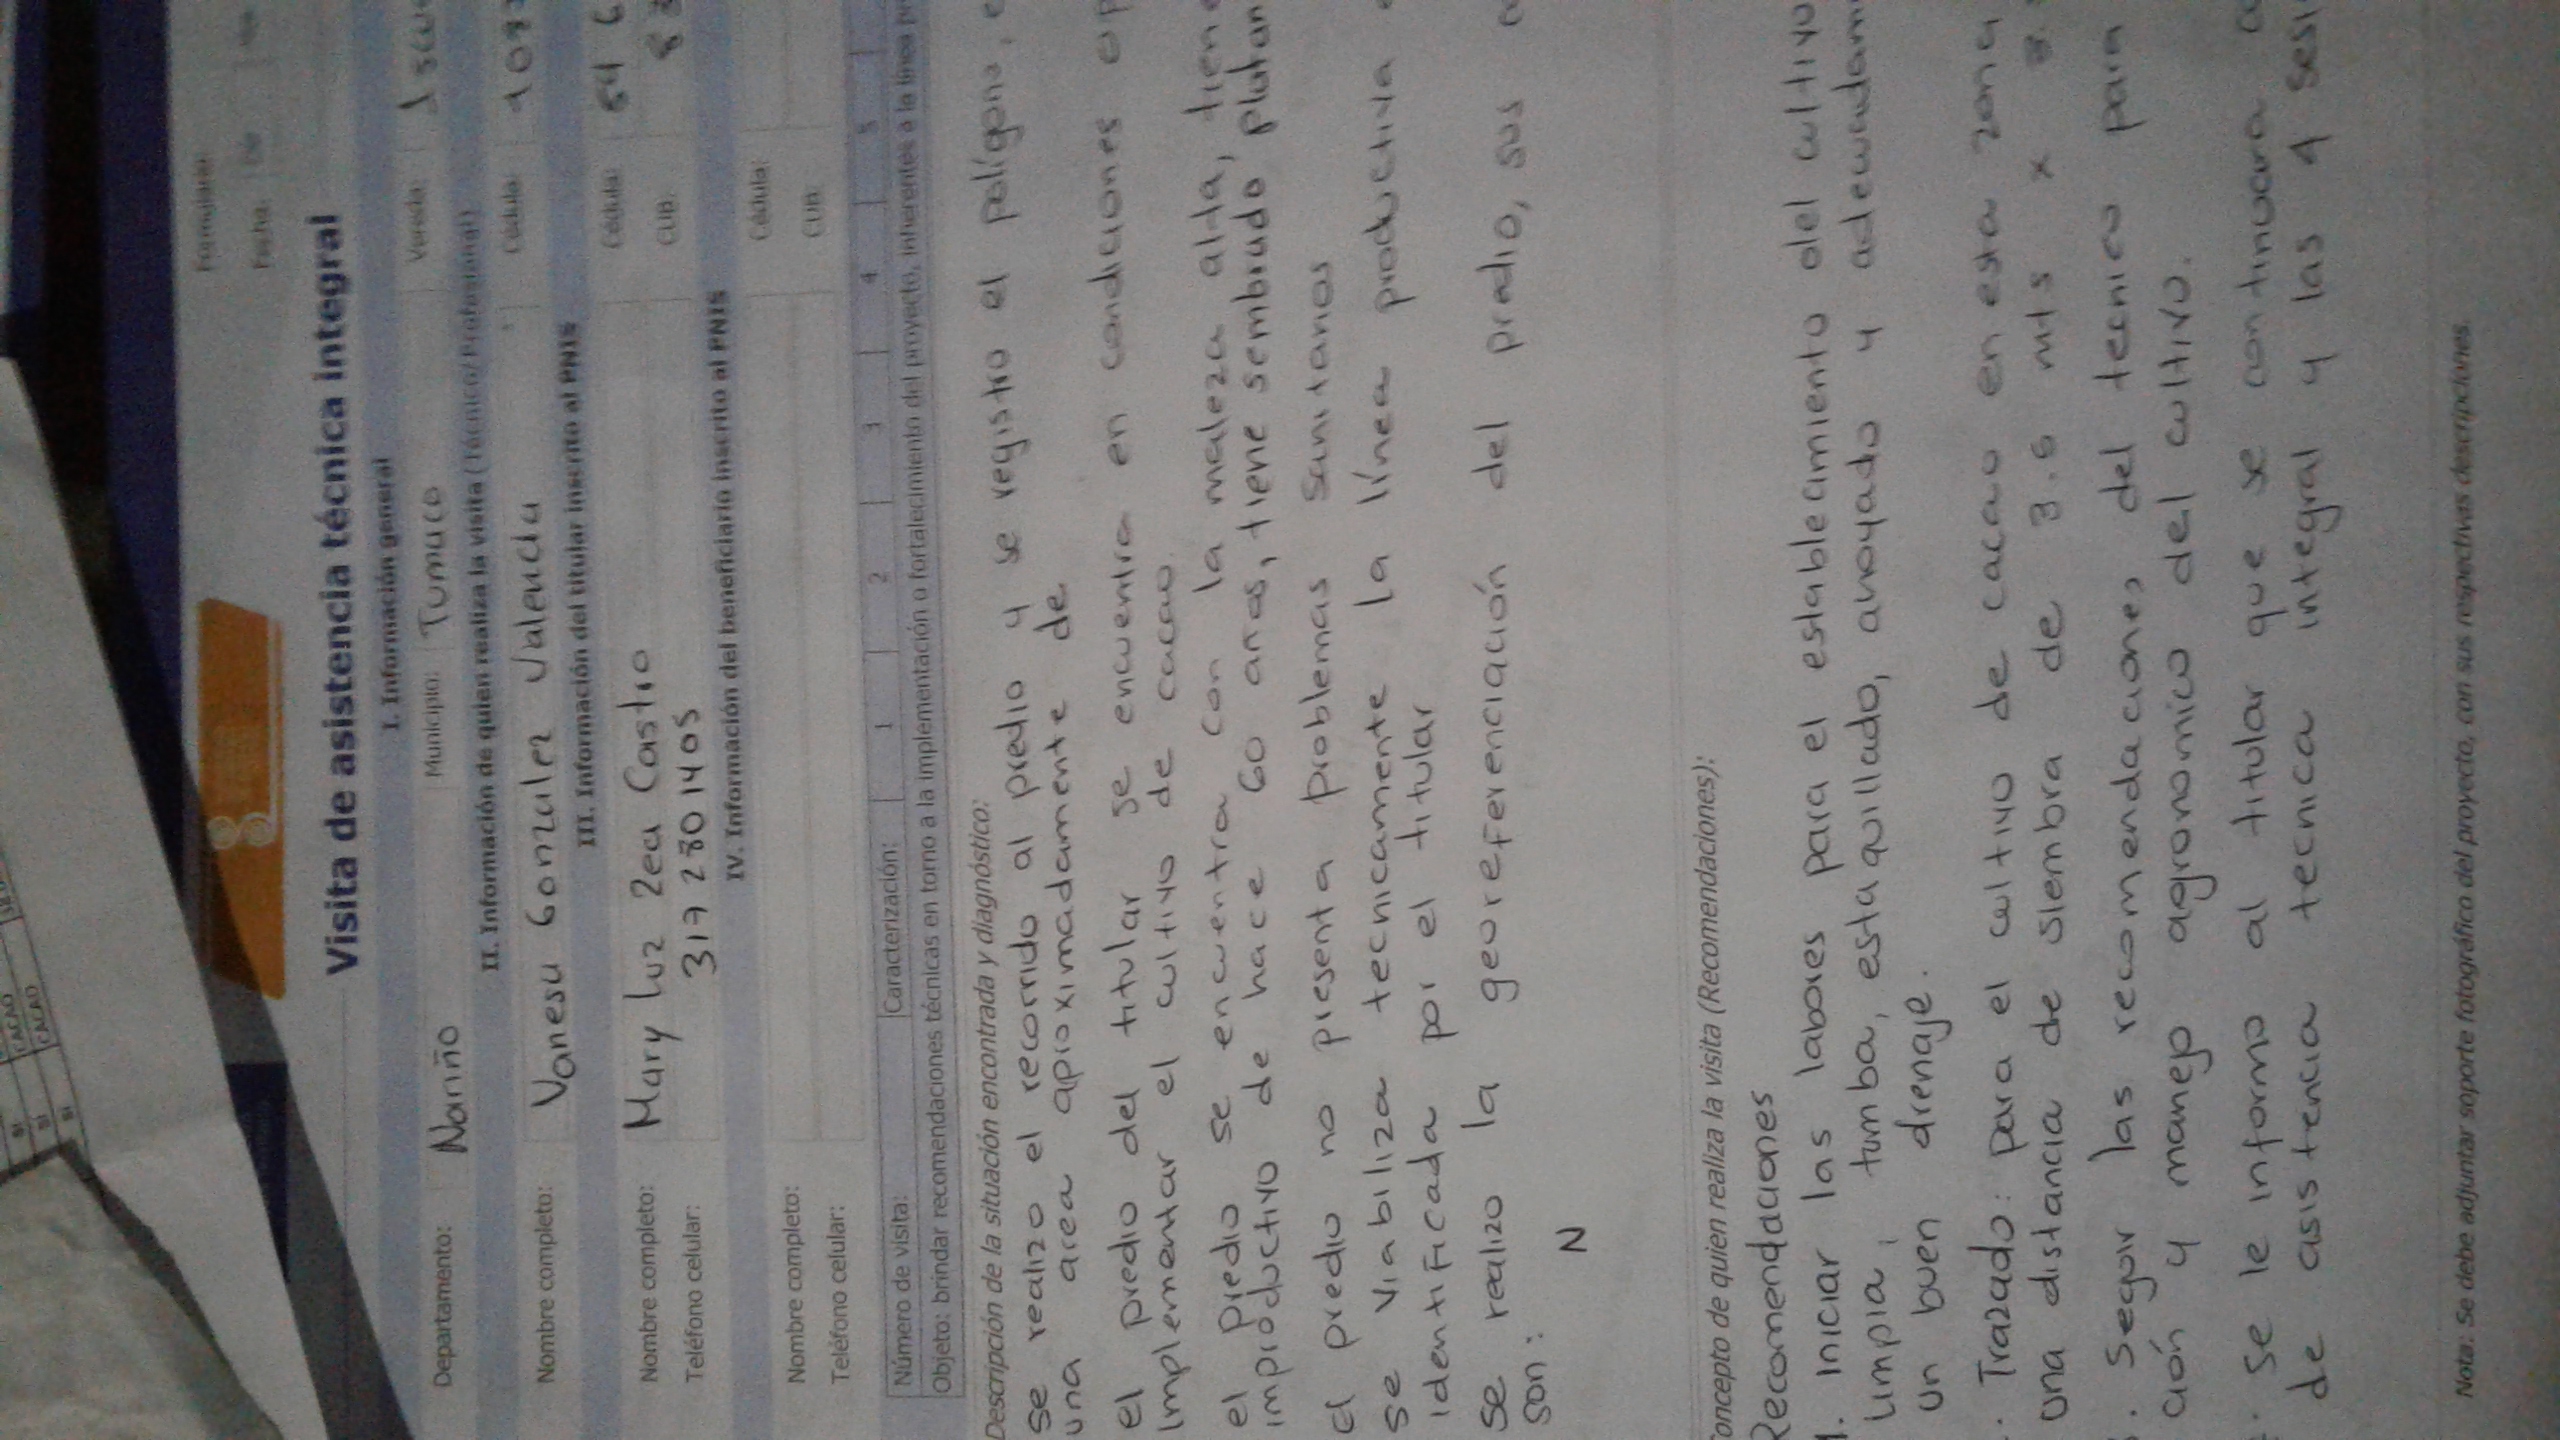 CACAO
SI
CACAO
SI
SI
Formulario:
Fecha:
Visita de asistencia técnica integral
I. Información general
Departamento: Nariño Municipio: Tumaco Vereda:
II. Información de quien realiza la visita (Técnico/Profesional)
Nombre completo: Vanesa Gonzalez Valencia Cédula: 108
III. Información del titular inscrito al PNIS
Nombre completo: Mary luz Zea Castro Cédula:
Teléfono celular: 317 2801405 CUB:
IV. Información del beneficiario inscrito al PNIS
Nombre completo: Cédula:
Teléfono celular: CUB:
Número de visita: Caracterización: 1 2 3 4 5
Objeto: brindar recomendaciones técnicas en torno a la implementación o fortalecimiento del proyecto, inherentes a la línea
Descripción de la situación encontrada y diagnóstico:
se realizo el recorrido al predio y se registro el polígono,
una area aproximadamente de
el predio del titular se encuentra en condiciones
Implementar el cultivo de cacao.
el predio se encuentra con la maleza alta,
improductivo de hace 60 años, tiene sembrado
el predio no presenta problemas sanitarios
se viabiliza tecnicamente la línea productiva
identificada por el titular
se realizo la georeferenciación del predio, sus
son:
N
oncepto de quien realiza la visita (Recomendaciones):
Recomendaciones
1. iniciar las labores para el establecimiento del cultivo
limpia, tumba, estaquillado, ahoyado y
un buen drenaje.
. Trazado: para el cultivo de cacao en esta zona
una distancia de siembra de 3.5 mts x
. Seguir las recomendaciones del tecnico para
ción y manejo agronomico del cultivo.
. se le informo al titular que se continuara
de asistencia tecnica integral y las 4
Nota: Se debe adjuntar soporte fotográfico del proyecto, con sus respectivas descripciones.